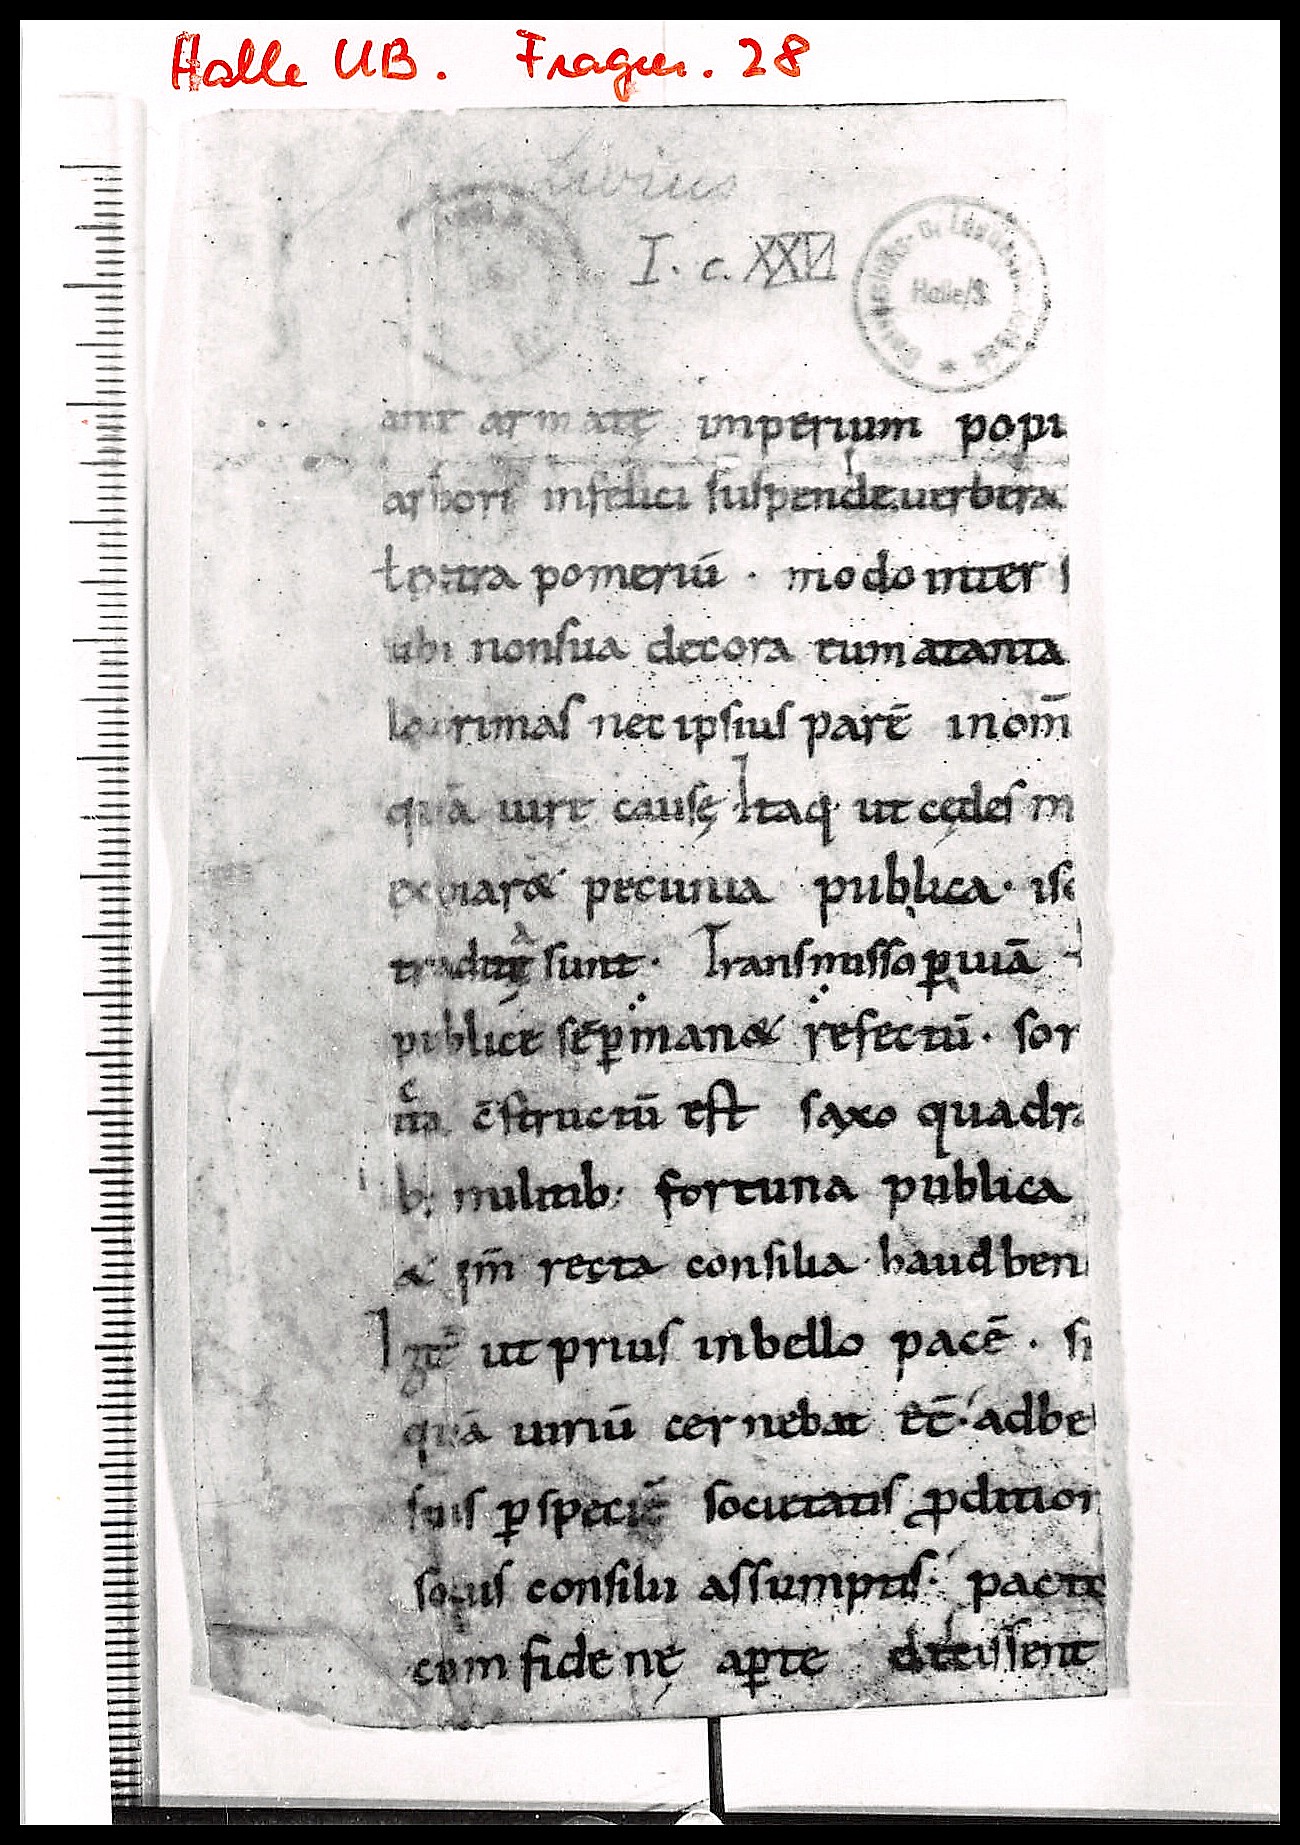 Halle UB. Fragm. 28
Livius
I. c. XXVI
Halle/S.
armatę imperium popu
arbori infelici suspende uerbera
pomeriū · modo inter s
ubi non sua decora eum a tanta
lacrimas nec ipsius parē in om̄
quā iure causę Itaq; ut cędes m
expiar& pecunia publica · ise
traditę sunt · Transmisso ꝑ uiā t
publice sēꝑ man& refectū · sor
cta c̄structū est saxo quadra
b; militib; fortuna publica
& om̄ recta consilia haud ben
Igit̄ ut prius in bello pacē · si
quā uiriū cernebat eē · ad be
suis ꝑ speciē societatis ꝓdition
socius consilii assumptis · pacto
com fidenę aꝑte discissent